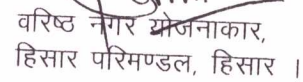 वरिष्ठ नगर योजनाकार,
हिसार परिमण्डल, हिसार ।